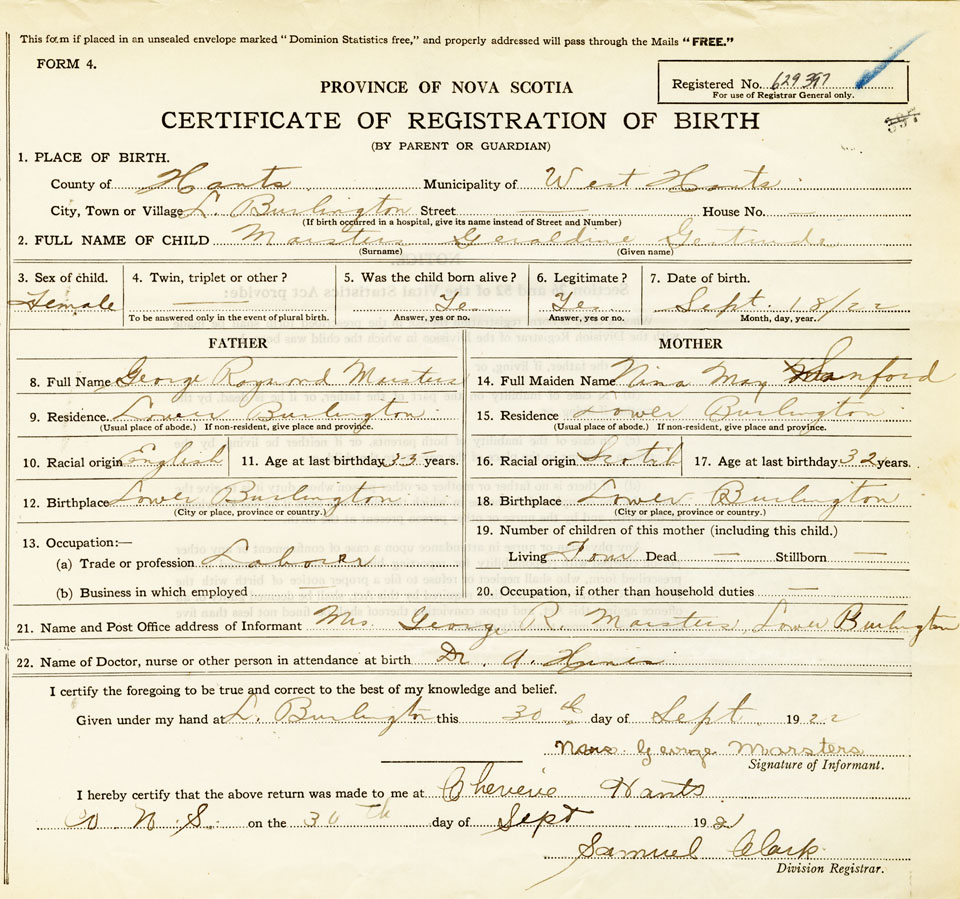 This form if placed in an unsealed envelope marked "Dominion Statistics free," and properly addressed will pass through the Mails "FREE."
FORM 4.
PROVINCE OF NOVA SCOTIA
Registered No. 629397
For use of Registrar General only.
CERTIFICATE OF REGISTRATION OF BIRTH
(BY PARENT OR GUARDIAN)
1. PLACE OF BIRTH.
County of Hants Municipality of West Hants
City, Town or Village L. Burlington Street — House No. —
(If birth occurred in a hospital, give its name instead of Street and Number)
2. FULL NAME OF CHILD Marsters Geraldine Gertrude
(Surname) (Given name)
3. Sex of child. 4. Twin, triplet or other? 5. Was the child born alive? 6. Legitimate? 7. Date of birth.
Female — Ye Ye Sept. 18/22
To be answered only in the event of plural birth. Answer, yes or no. Answer, yes or no. Month, day, year.
FATHER MOTHER
8. Full Name George Raymond Marsters 14. Full Maiden Name Nina May Sanford
9. Residence Lower Burlington 15. Residence Lower Burlington
(Usual place of abode.) If non-resident, give place and province. (Usual place of abode.) If non-resident, give place and province.
10. Racial origin English 11. Age at last birthday 35 years. 16. Racial origin Scotch 17. Age at last birthday 32 years.
12. Birthplace Lower Burlington 18. Birthplace Lower Burlington
(City or place, province or country.) (City or place, province or country.)
19. Number of children of this mother (including this child.)
13. Occupation:—
(a) Trade or profession Laborer Living Four Dead — Stillborn —
(b) Business in which employed — 20. Occupation, if other than household duties —
21. Name and Post Office address of Informant Mrs. George R. Marsters, Lower Burlington
22. Name of Doctor, nurse or other person in attendance at birth Dr. A.
I certify the foregoing to be true and correct to the best of my knowledge and belief.
Given under my hand at L. Burlington this 30th day of Sept. 1922
Mrs. George Marsters
Signature of Informant.
I hereby certify that the above return was made to me at Cheverie Hants
Co N.S. on the 30th day of Sept 192
Samuel Clark
Division Registrar.